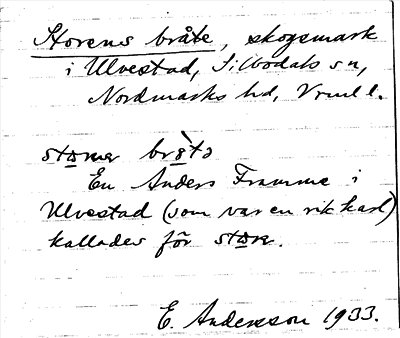 Storens bråte, skogsmark
i Ulvestad, Silbodals sn,
Nordmarks hd, Vrml l.
En Anders Framme i
Ulvestad (som var en rik karl)
kallades för
E. Andersson 1933.